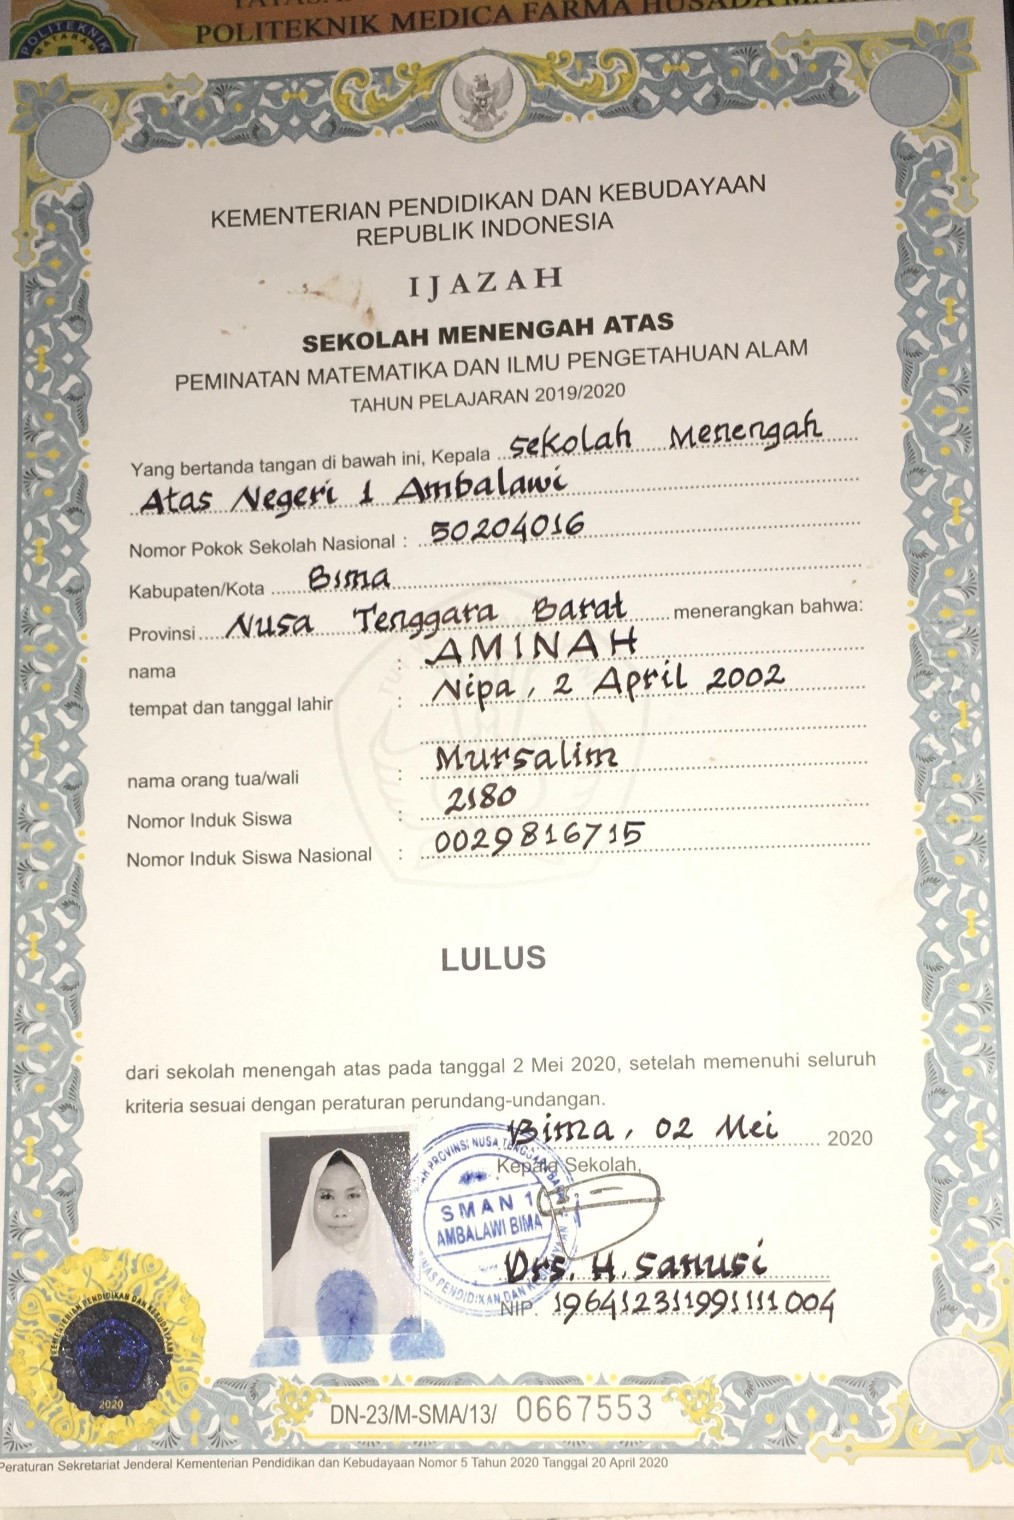 POLITEKNIK MEDICA FARMA HUSADA
POLITEKNIK
MATARAM
KEMENTERIAN PENDIDIKAN DAN KEBUDAYAAN
REPUBLIK INDONESIA
IJAZAH
SEKOLAH MENENGAH ATAS
PEMINATAN MATEMATIKA DAN ILMU PENGETAHUAN ALAM
TAHUN PELAJARAN 2019/2020
Yang bertanda tangan di bawah ini, Kepala Sekolah Menengah
Atas Negeri 1 Ambalawi
Nomor Pokok Sekolah Nasional : 50204016
Kabupaten/Kota Bima
Provinsi Nusa Tenggara Barat menerangkan bahwa:
nama : AMINAH
tempat dan tanggal lahir : Nipa, 2 April 2002
nama orang tua/wali : Mursalim
Nomor Induk Siswa : 2180
Nomor Induk Siswa Nasional : 0029816715
LULUS
dari sekolah menengah atas pada tanggal 2 Mei 2020, setelah memenuhi seluruh
kriteria sesuai dengan peraturan perundang-undangan.
Bima, 02 Mei 2020
Kepala Sekolah,
PROVINSI NUSA TENGGARA BARAT
SMAN 1
AMBALAWI BIMA
DINAS PENDIDIKAN DAN KEBUDAYAAN
Drs. H. Sanusi
NIP. 196412311991111004
KEMENTERIAN PENDIDIKAN DAN KEBUDAYAAN
2020
DN-23/M-SMA/13/ 0667553
Peraturan Sekretariat Jenderal Kementerian Pendidikan dan Kebudayaan Nomor 5 Tahun 2020 Tanggal 20 April 2020